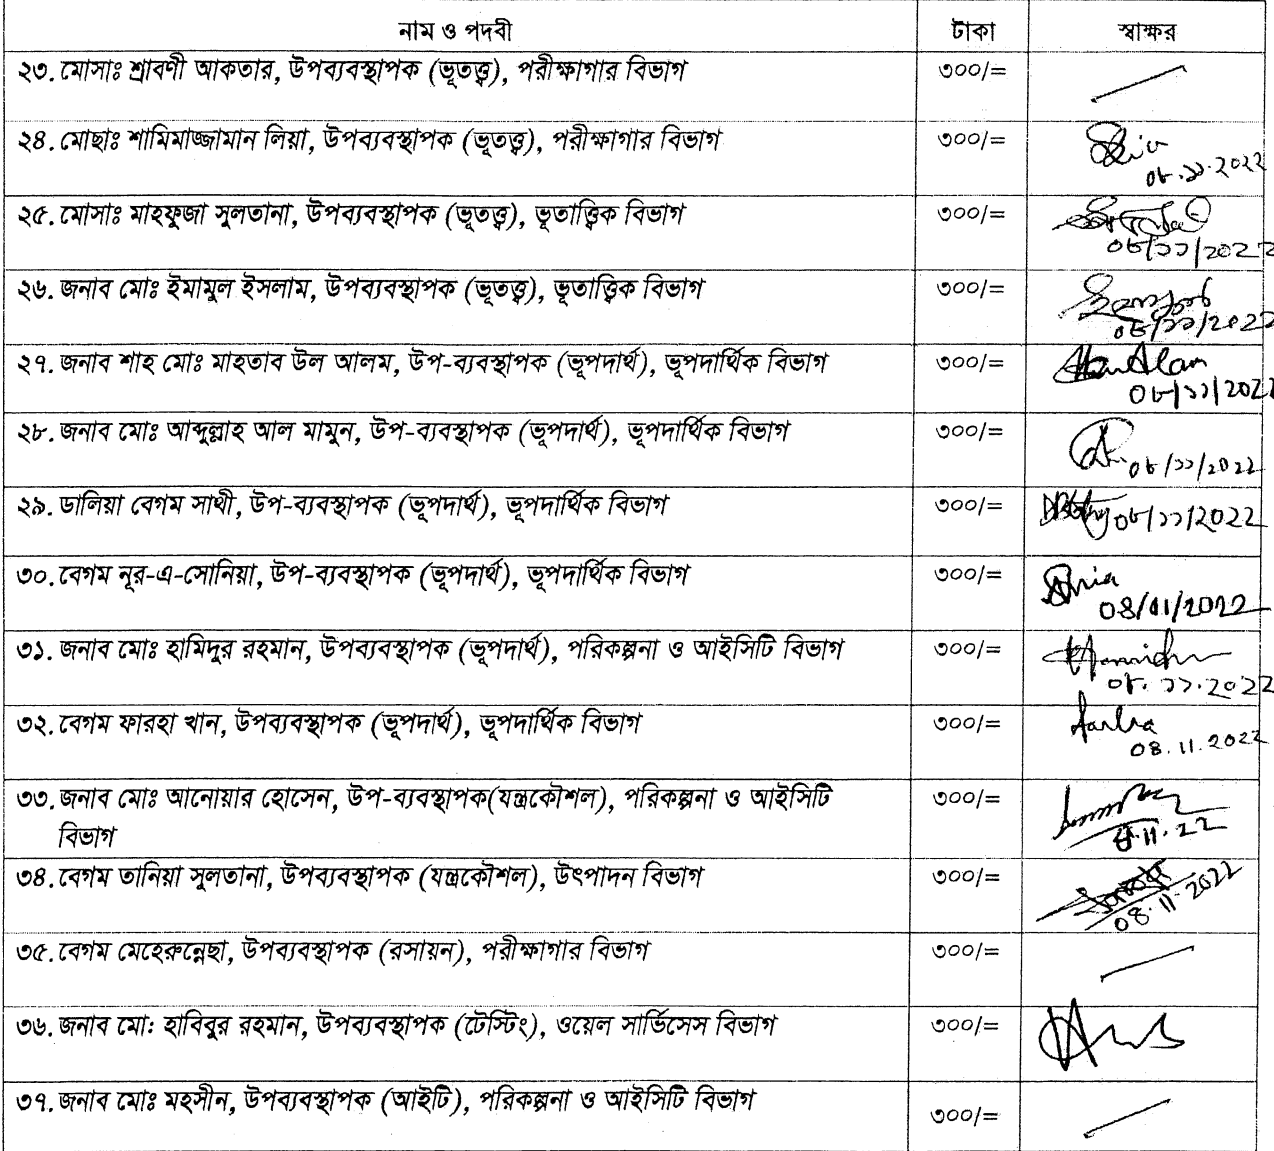 নাম ও পদবী টাকা স্বাক্ষর
২৩. মোসাঃ শ্রাবণী আকতার, উপব্যবস্থাপক (ভূতত্ত্ব), পরীক্ষাগার বিভাগ ৩০০/=
২৪. মোছাঃ শামিমাজ্জামান লিয়া, উপব্যবস্থাপক (ভূতত্ত্ব), পরীক্ষাগার বিভাগ ৩০০/=
০৮.১১.2022
২৫. মোসাঃ মাহফুজা সুলতানা, উপব্যবস্থাপক (ভূতত্ত্ব), ভূতাত্ত্বিক বিভাগ ৩০০/=
০৮/১১/2022
২৬. জনাব মোঃ ইমামুল ইসলাম, উপব্যবস্থাপক (ভূতত্ত্ব), ভূতাত্ত্বিক বিভাগ ৩০০/=
০৮/১১/2022
২৭. জনাব শাহ মোঃ মাহতাব উল আলম, উপ-ব্যবস্থাপক (ভূপদার্থ), ভূপদার্থিক বিভাগ ৩০০/= Alam
০৮/১১/2022
২৮. জনাব মোঃ আব্দুল্লাহ আল মামুন, উপ-ব্যবস্থাপক (ভূপদার্থ), ভূপদার্থিক বিভাগ ৩০০/=
০৮/১১/2022
২৯. ডালিয়া বেগম সাথী, উপ-ব্যবস্থাপক (ভূপদার্থ), ভূপদার্থিক বিভাগ ৩০০/= ০৮/১১/2022
৩০. বেগম নূর-এ-সোনিয়া, উপ-ব্যবস্থাপক (ভূপদার্থ), ভূপদার্থিক বিভাগ ৩০০/=
08/11/2022
৩১. জনাব মোঃ হামিদুর রহমান, উপব্যবস্থাপক (ভূপদার্থ), পরিকল্পনা ও আইসিটি বিভাগ ৩০০/=
০৮.১১.2022
৩২. বেগম ফারহা খান, উপব্যবস্থাপক (ভূপদার্থ), ভূপদার্থিক বিভাগ ৩০০/= Farha
08.11.2022
৩৩. জনাব মোঃ আনোয়ার হোসেন, উপ-ব্যবস্থাপক(যন্ত্রকৌশল), পরিকল্পনা ও আইসিটি ৩০০/=
বিভাগ 8.11.22
৩৪. বেগম তানিয়া সুলতানা, উপব্যবস্থাপক (যন্ত্রকৌশল), উৎপাদন বিভাগ ৩০০/=
08.11.2022
৩৫. বেগম মেহেরুন্নেছা, উপব্যবস্থাপক (রসায়ন), পরীক্ষাগার বিভাগ ৩০০/=
৩৬. জনাব মো: হাবিবুর রহমান, উপব্যবস্থাপক (টেস্টিং), ওয়েল সার্ভিসেস বিভাগ ৩০০/=
৩৭. জনাব মোঃ মহসীন, উপব্যবস্থাপক (আইটি), পরিকল্পনা ও আইসিটি বিভাগ ৩০০/=